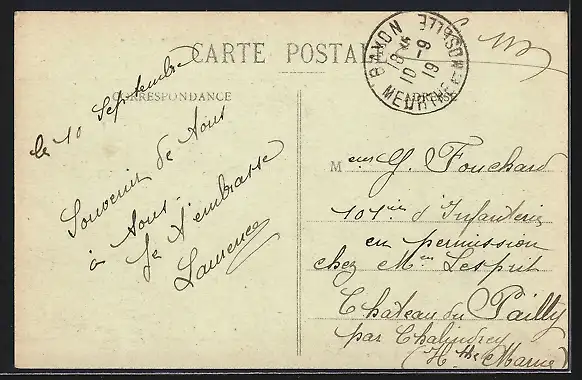 CARTE POSTALE
CORRESPONDANCE
ADRESSE
BAYON
18 45
10 -9
19
MEURTHE-ET-MOSELLE
le 10 Septembre
Souvenir de Nous
à Nous.
Je t'embrasse
Laurence
Meur G. Fouchard
101ième d'Infanterie
en permission
chez Mme Lesprit
Château du Pailly
par Chalindrey
(Hte Marne)